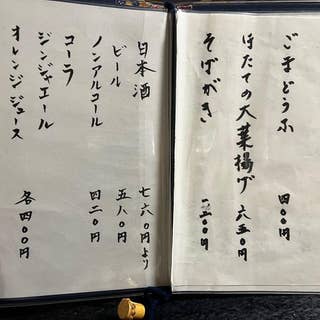 ごまどうふ 四〇〇円
ほたての大葉揚げ 六五〇円
そばがき 一二〇〇円
日本酒 七六〇円より
ビール 五八〇円
ノンアルコール 四二〇円
コーラ
ジンジャエール
オレンジジュース 各四〇〇円